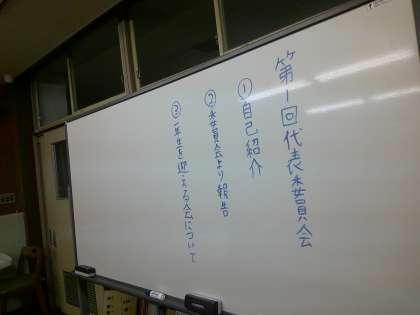 第1回代表委員会
①自己紹介
②委員会より報告
③一年生を迎える会について